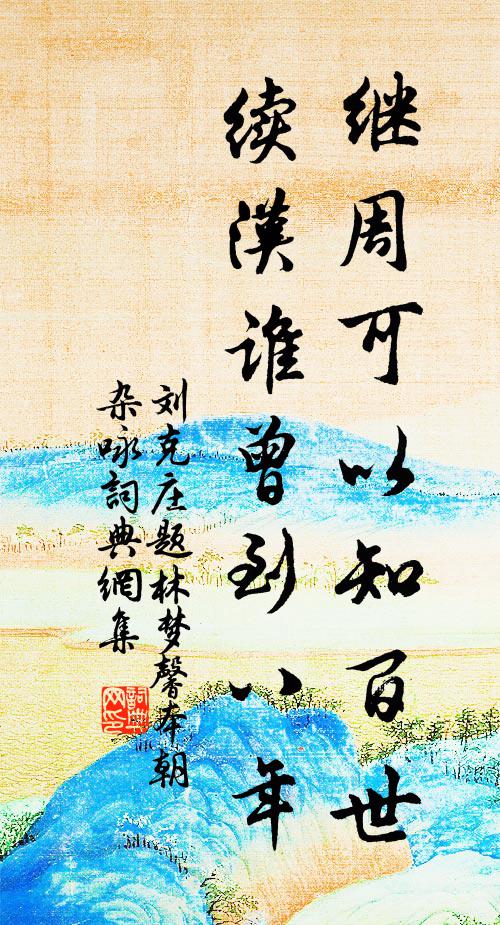 继周可以知百世
续漢谁曾到八年
刘克庄题林梦馨本朝
杂咏詞典網集